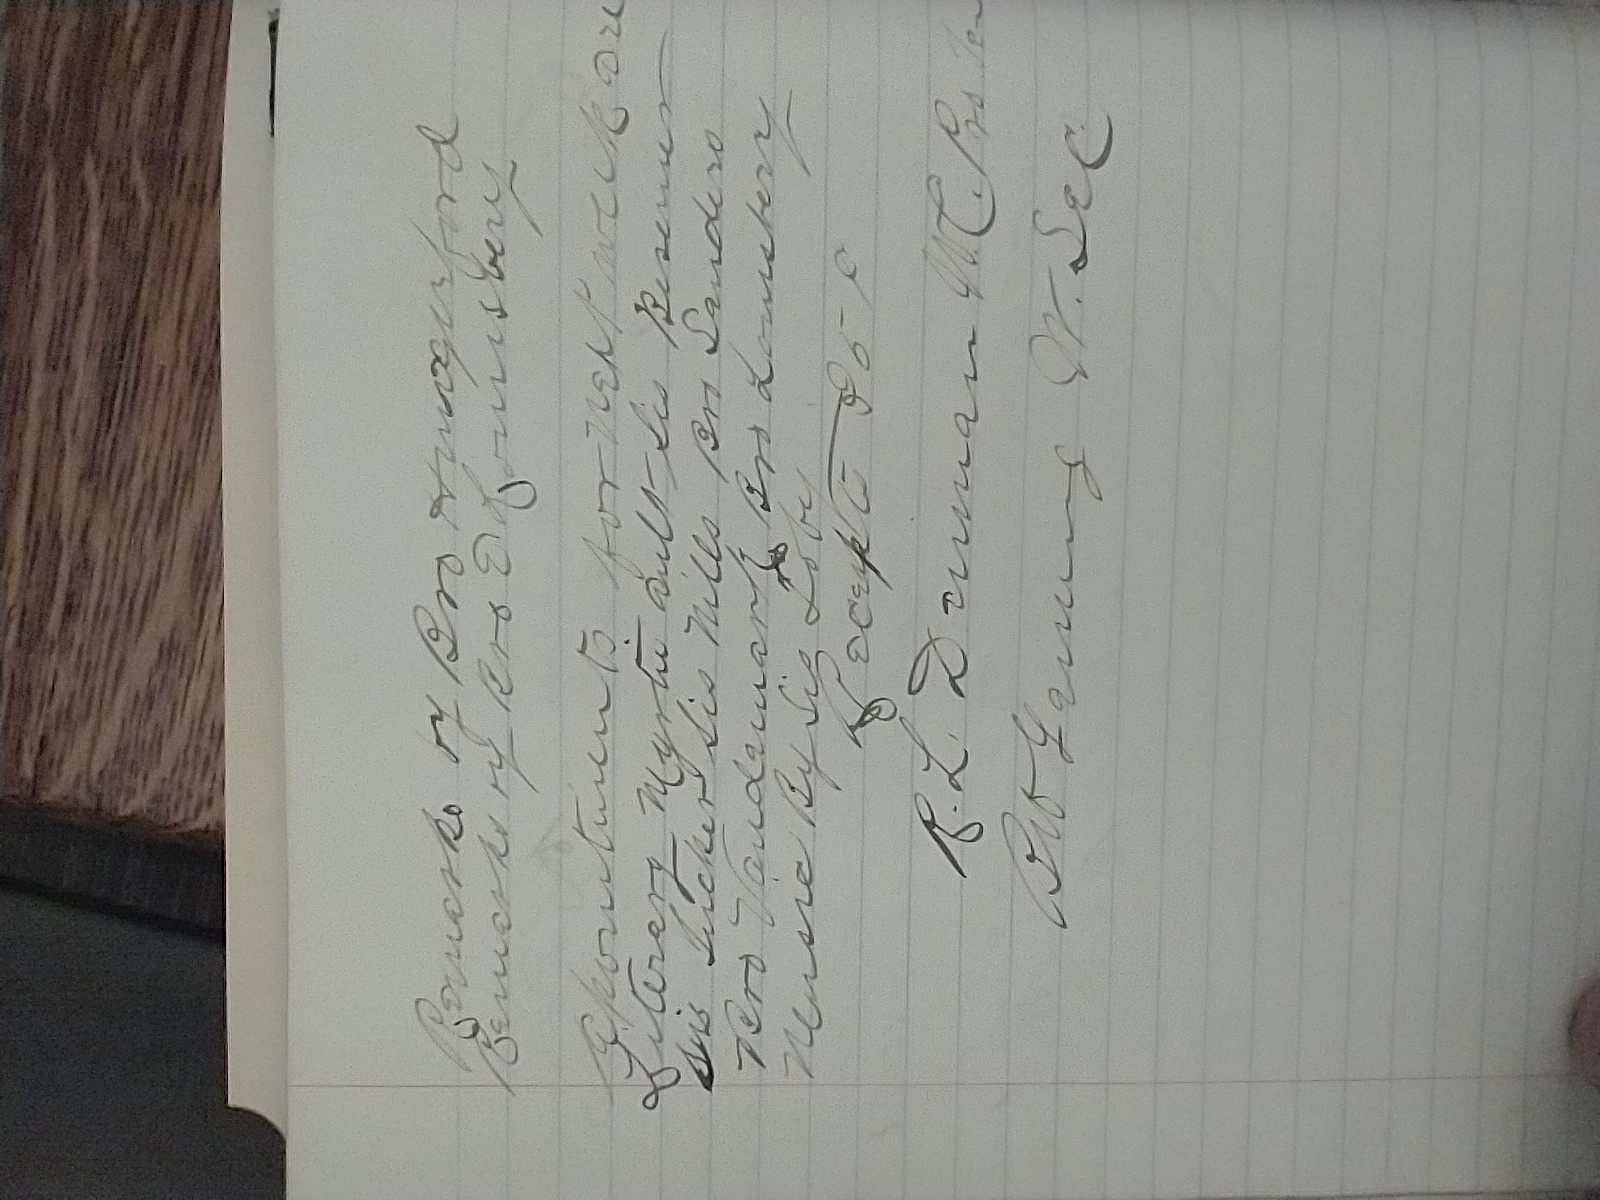 Remarks by Bro Hungerford
Remarks of Bro E Lounsbery
Apointments for Next week are
Literary Myrtie aults Sis Beseman
Sis Sucker Sis Mills Bro Sanders
Bro Vandemark Bro Lounsbery
Music By Sig Loby
Reciepts 26 c
R. L. Denman W.M. Pro tem
B W Genung W. Sec